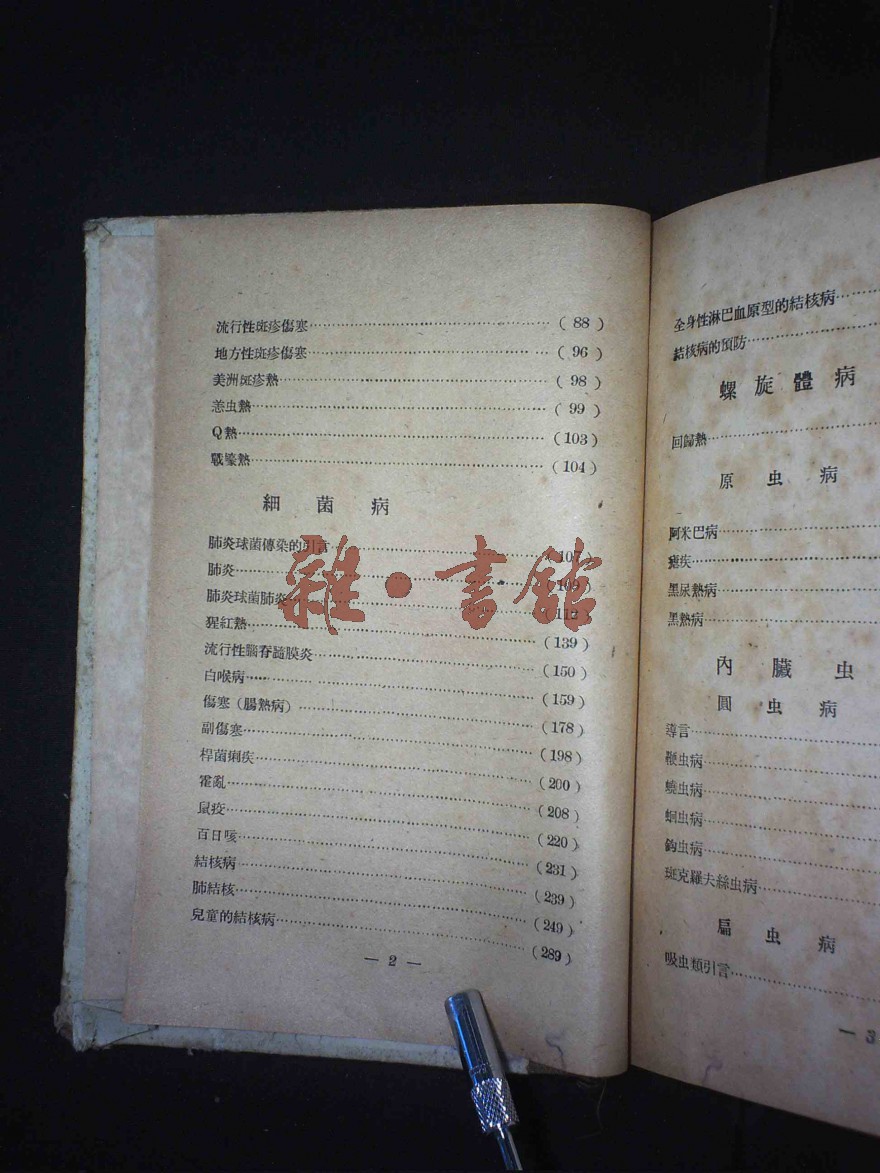 流行性斑疹傷寒……(88)
地方性斑疹傷寒……(96)
美洲斑疹熱……(98)
恙虫熱……(99)
Q熱……(103)
戰壕熱……(104)
細菌病
肺炎球菌傳染的引言……(107)
肺炎……(109)
肺炎球菌肺炎……(112)
猩紅熱……(139)
流行性腦脊髓膜炎……(150)
白喉病……(159)
傷寒(腸熱病)……(178)
副傷寒……(198)
桿菌痢疾……(200)
霍亂……(208)
鼠疫……(220)
百日咳……(231)
結核病……(239)
肺結核……(249)
兒童的結核病……(289)
— 2 —
雜·書館
全身性淋巴血原型的結核病……
結核病的預防……
螺旋體病
回歸熱……
原虫病
阿米巴病……
瘧疾……
黑尿熱病……
黑熱病……
內臟虫
圓虫病
導言……
鞭虫病……
蟯虫病……
蛔虫病……
鈎虫病……
斑克羅夫絲虫病……
扁虫病
吸虫類引言……
— 3